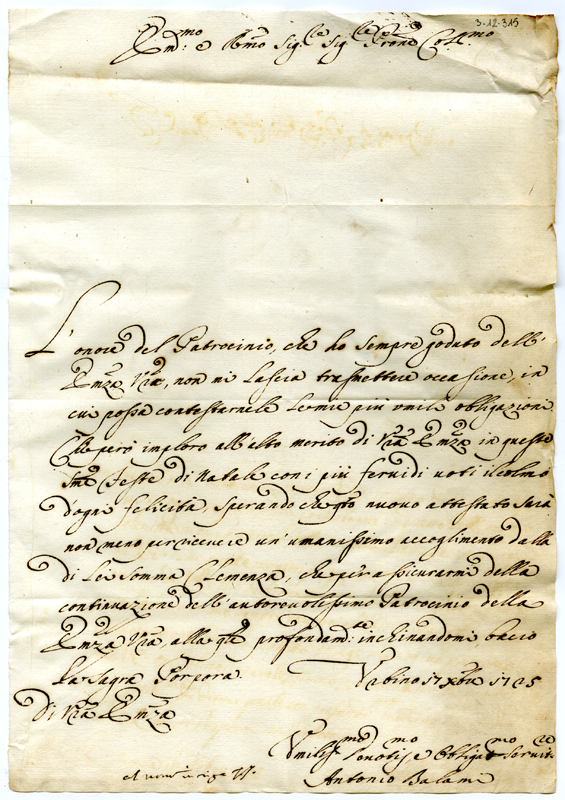 3-12-315
Em.mo e Rmo Sig.re Sig.re Prone Col.mo
L'onore del Patrocinio, che ho sempre goduto dell'
Emza Vra, non mi lascia trasmettere occasione, in
cui possa contestarnele le mie più umili obligazioni.
Che però imploro all'alto merito di Vra Emza in queste
Sme Feste di Natale con i più feruidi uoti il colmo
d'ogni felicità, sperando che qto nuouo attestato sarà
non meno per riceuere un'umanissimo accoglimento dalla
di Lei Somma Clemenza, che per assicurarmi della
continuazione dell'autoreuolissimo Patrocinio della
Emza Vra, alla qle profondam.te inchinandomi bacio
la Sagra Porpora. Urbino 17 Xbre 1725
Di Vra Emza
Umiliss.mo Deuotis.mo e Obligat.mo Seruit.re
Antonio Balami